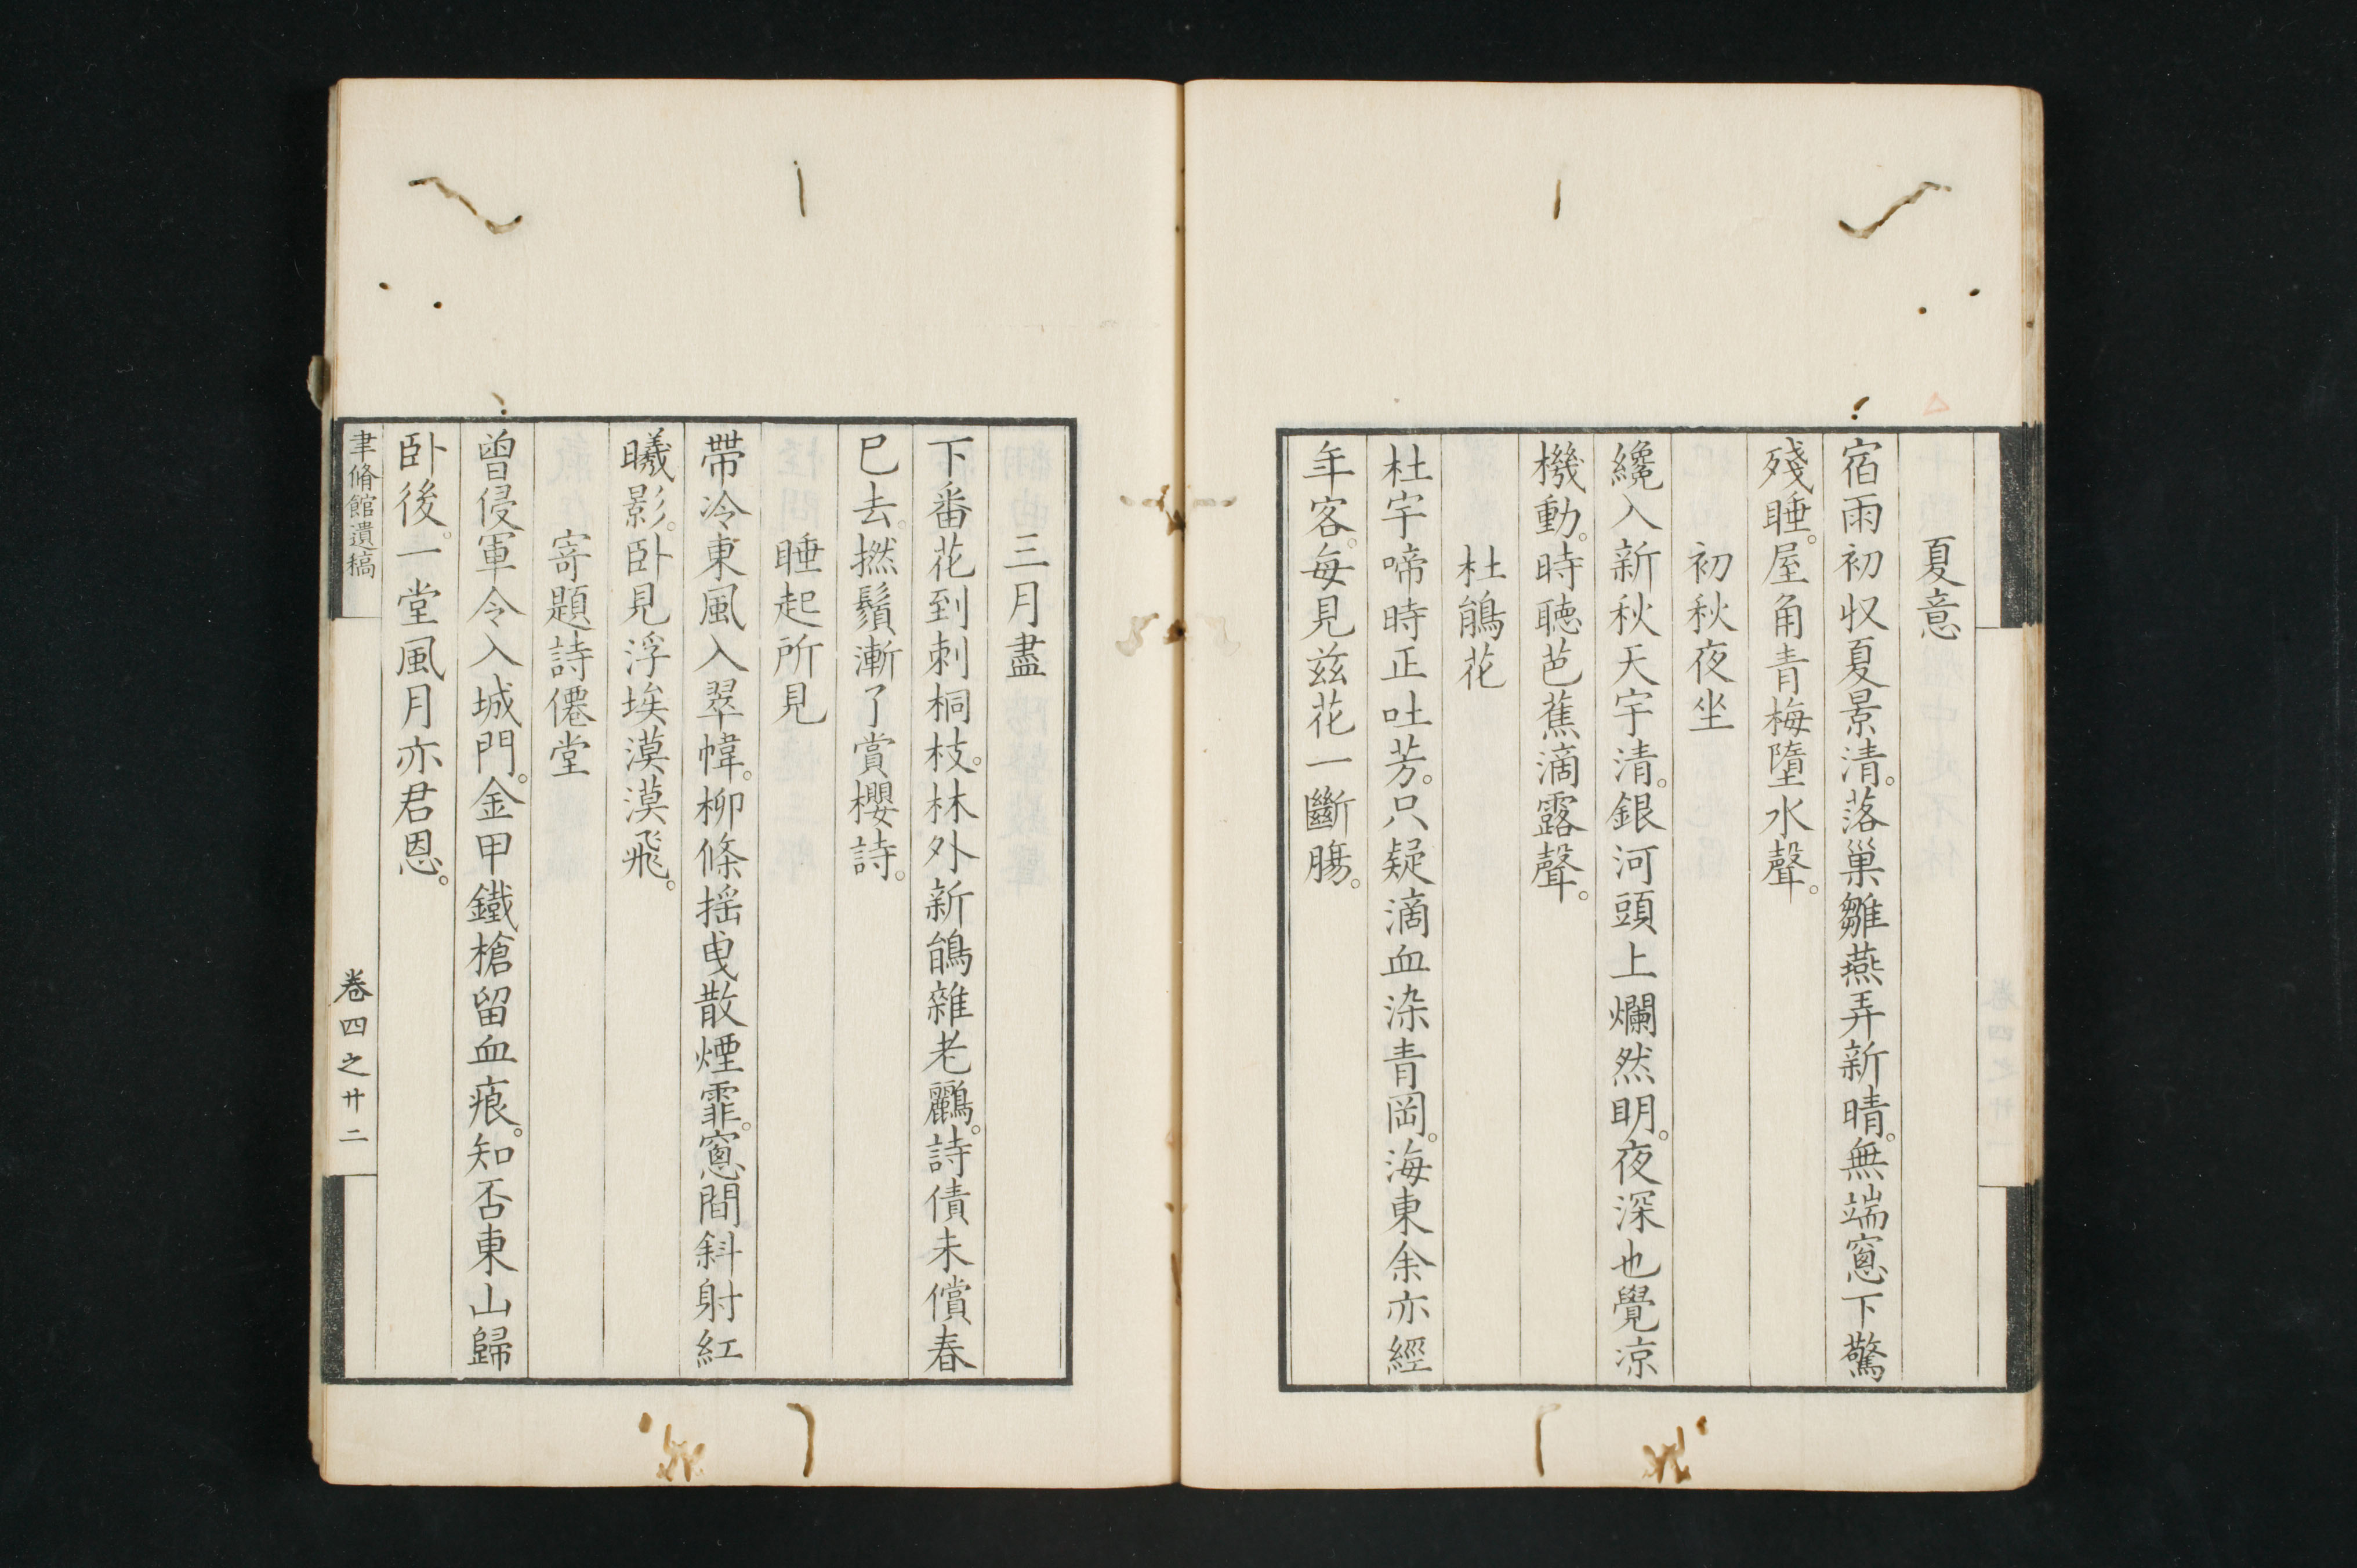 夏意
宿雨初収夏景清。落巢雛燕弄新晴。無端窻下驚
殘睡。屋角青梅墮水聲。
初秋夜坐
纔入新秋天宇清。銀河頭上爛然明。夜深也覺涼
機動。時聴芭蕉滴露聲。
杜鵑花
杜宇啼時正吐芳。只疑滴血染青岡。海東余亦經
年客。每見茲花一斷腸。
三月盡
下番花到刺桐枝。林外新鵑雜老鸝。詩債未償春
已去。撚鬚漸了賞櫻詩。
睡起所見
帶冷東風入翠幃。柳條揺曳散煙霏。窻間斜射紅
曦影。卧見浮埃漠漠飛。
寄題詩僊堂
曾侵軍令入城門。金甲鐵槍留血痕。知否東山歸
卧後。一堂風月亦君恩。
聿脩館遺稿
卷四之廿二